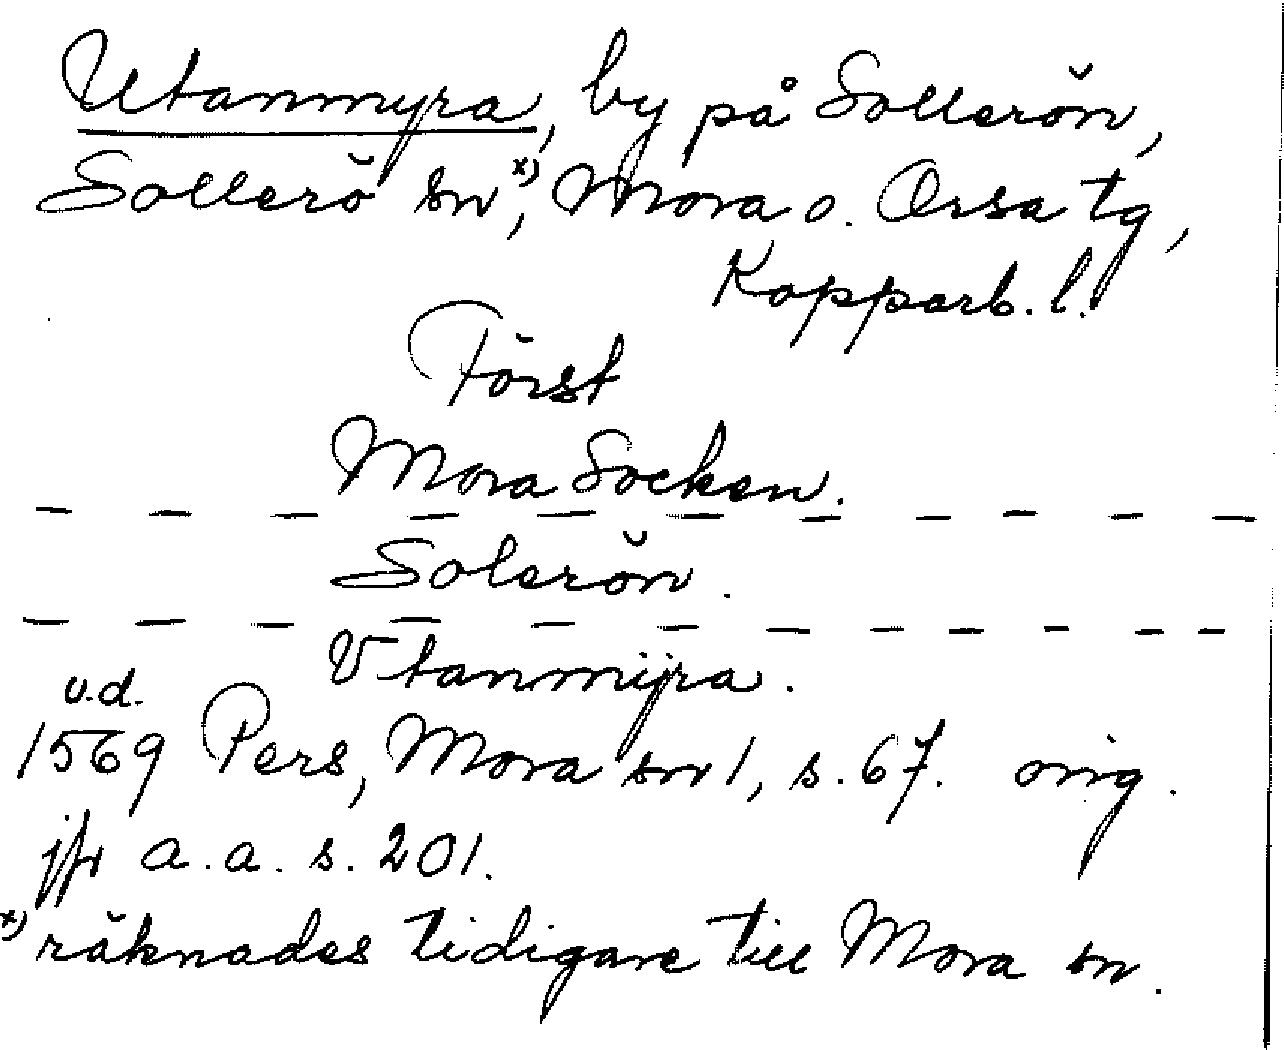 Utanmyra, by på Sollerön,
Sollerö sn x), Mora o. Orsa tg,
Kopparb. l.
Först
Mora Socken.
— — — — — — — — — — —
Solerön.
— — — — — — — — — — —
Vtanmÿra.
u.d.
1569 Pers, Mora sn 1, s. 67. orig.
jfr a.a. s. 201.
x) räknades tidigare till Mora sn.